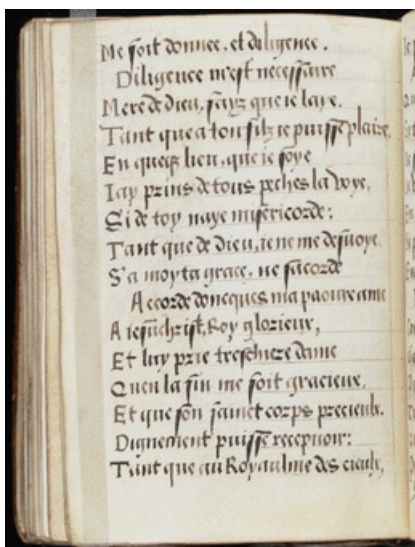 Me soit donnee, et diligence.
Diligence m'est necessaire
Mere de dieu, fays que ie laye.
Tant que a ton filz ie puisse plaire,
En quelq lieu, que ie soye
Iay prins de tous peches la voye,
Si de toy naye misericorde:
Tant que de dieu, ie ne me desuoye.
S'a moy ta grace, ne sacorde
Accorde doncques ma paoure ame
A iesuchrist, Roy glorieux,
Et luy prie treschiere dame
Quen la fin me soit gracieux.
Et que son sainct corps precieulx.
Dignement puisse recepuoir:
Tant que au Royaulme des cieulx,